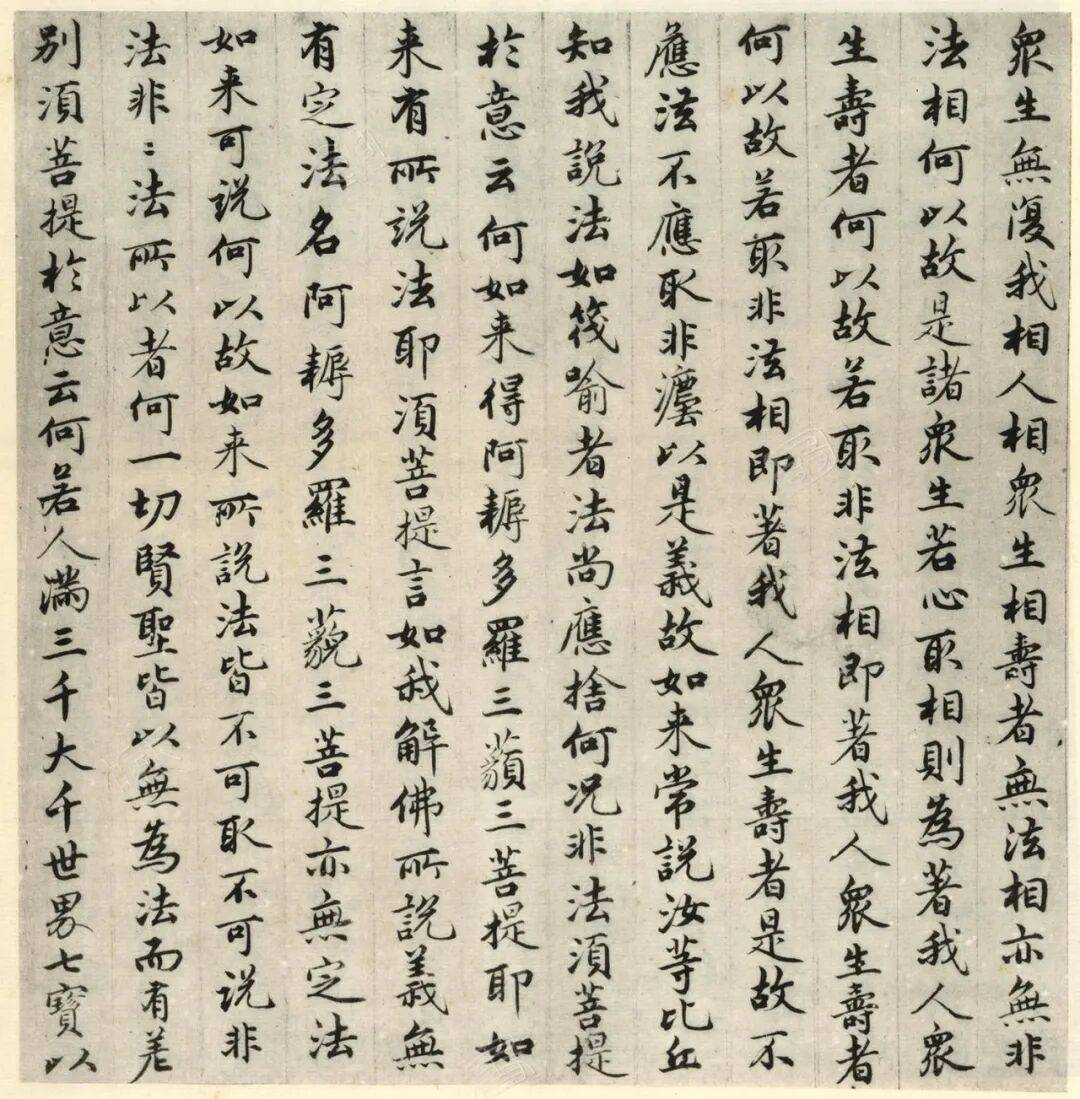 衆生無復我相人相衆生相壽者無法相亦無非
法相何以故是諸衆生若心取相則為著我人衆
生壽者何以故若取非法相即著我人衆生壽者
何以故若取非法相即著我人衆生壽者是故不
應法不應取非法以是義故如来常說汝等比丘
知我說法如筏喻者法尚應捨何况非法須菩提
於意云何如来得阿耨多羅三藐三菩提耶如
来有所説法耶須菩提言如我解佛所說義無
有定法名阿耨多羅三藐三菩提亦無定法
如来可説何以故如来所説法皆不可取不可説非
法非〻法所以者何一切賢聖皆以無為法而有差
别須菩提於意云何若人滿三千大千世界七寶以